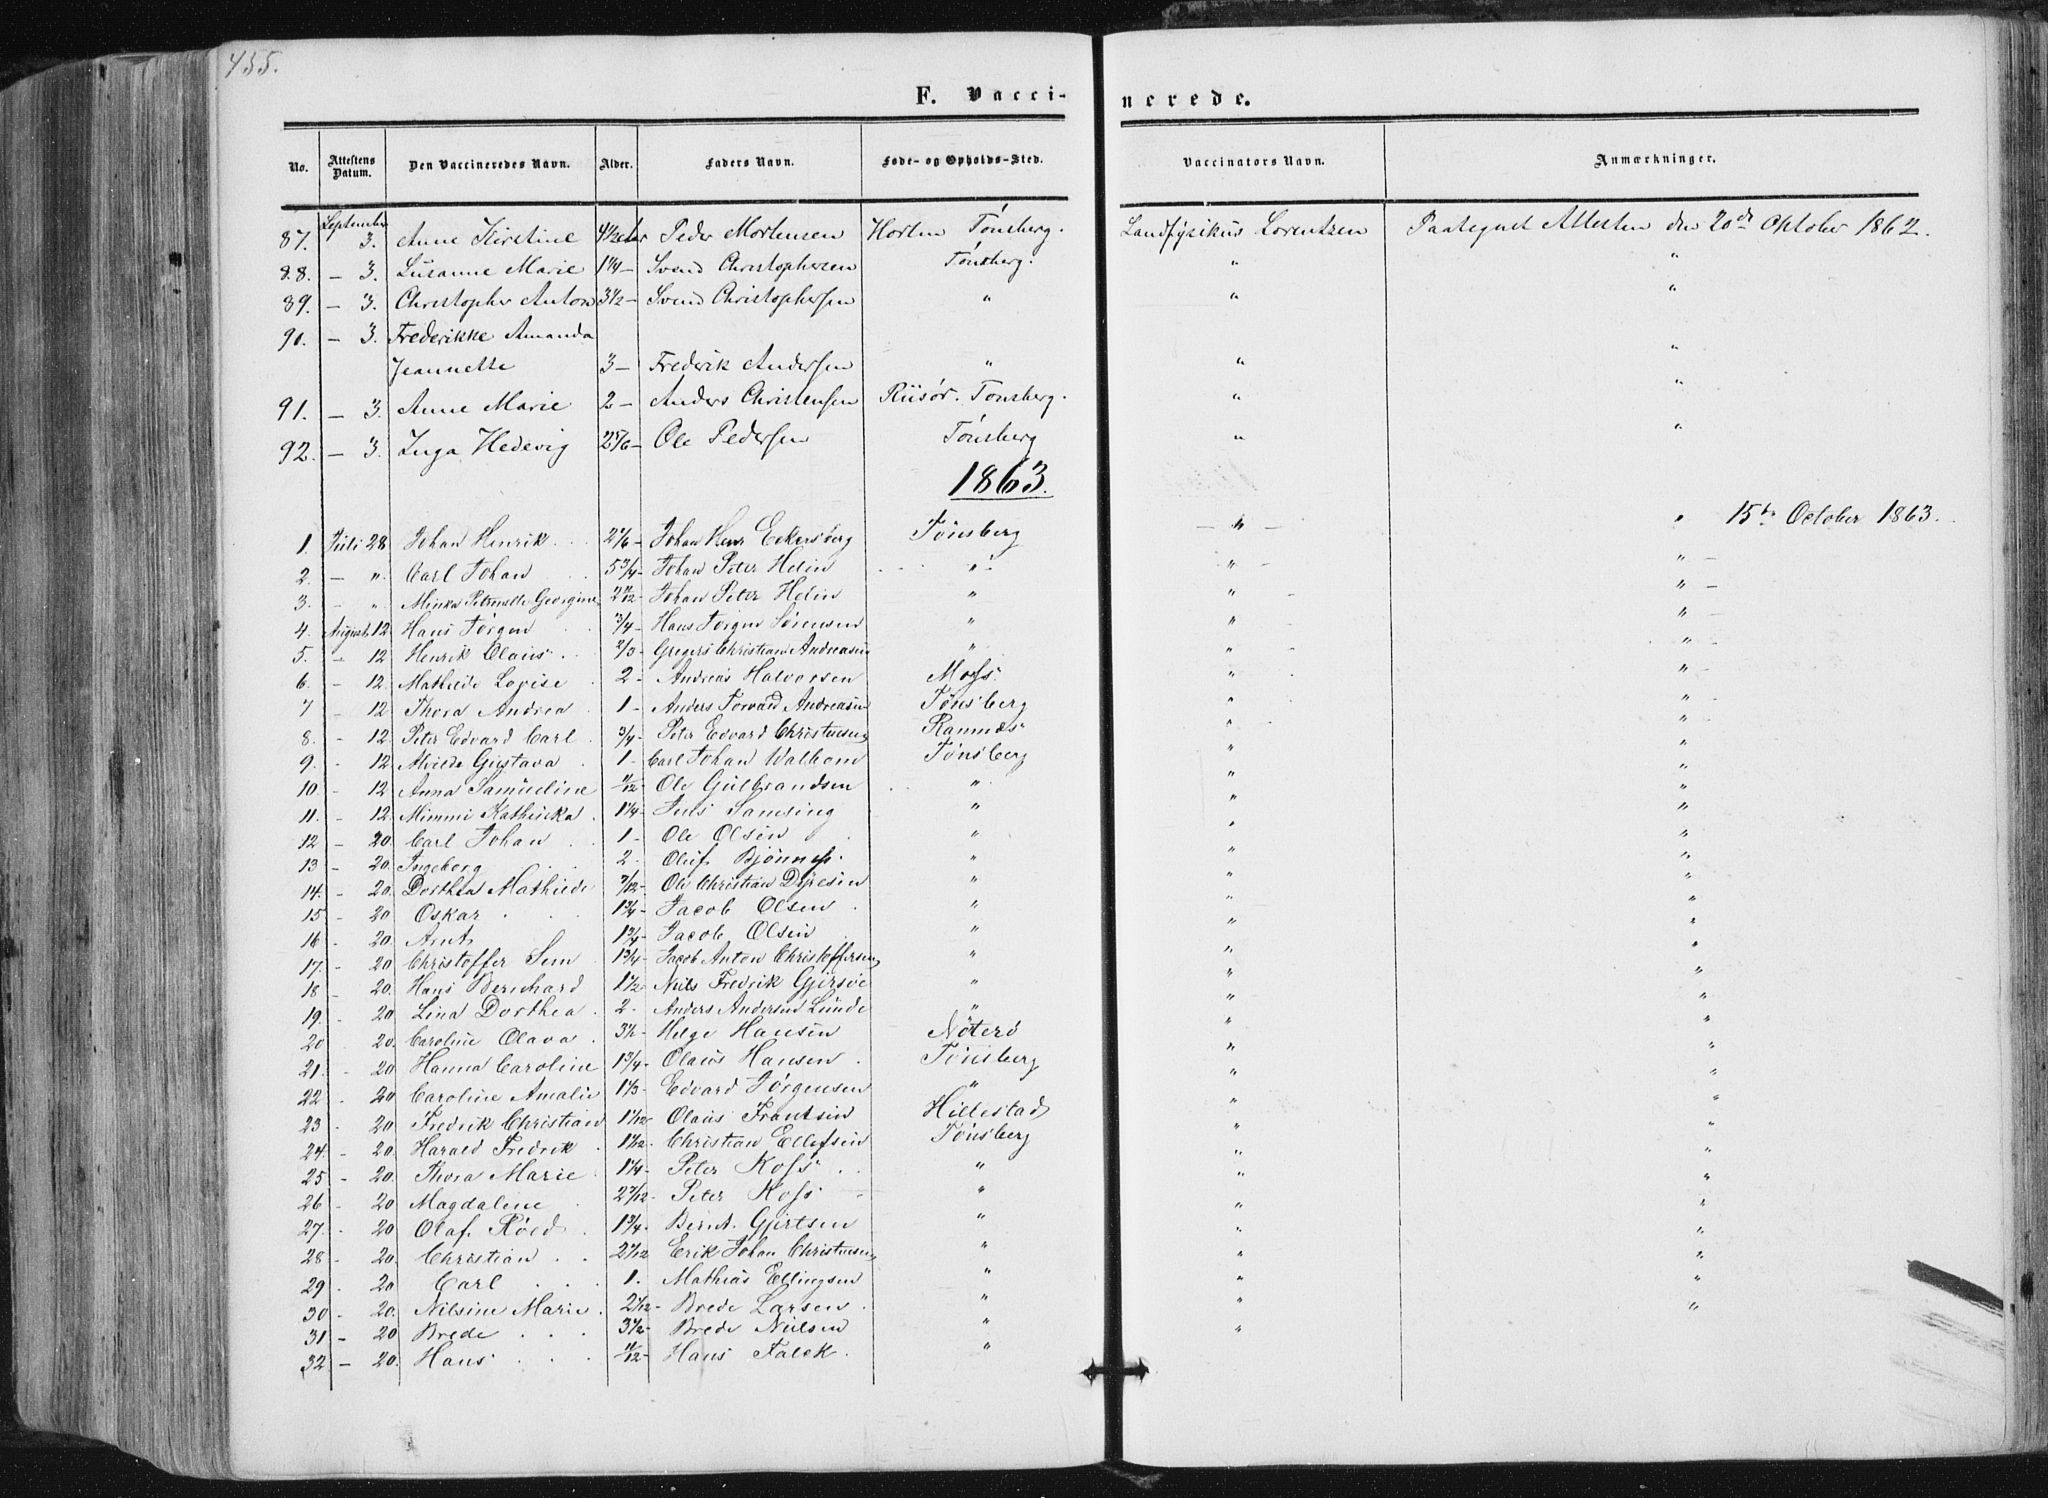 455.
F. Vaccinerede.
No. Attestens Datum. Den Vaccineredes Navn. Alder. Faders Navn. Føde- og Opholds-Sted. Vaccinators Navn. Anmærkninger.
September
87. 3. Anne Kirstine 4 1/2 Peder Mortensen Horten Tönsberg. Landfysikus Lorentzen Paategnet Attesten den 20de Oktober 1862.
88. – 3. Susanne Marie 1 1/4 – Svend Christophersen Tönsberg. " "
89. – 3. Christopher Anton 3 1/2 – Svend Christophersen " " "
90. – 3. Frederikke Amanda
Jeannette 3 – Fredrik Andersen " " "
91. – 3. Anne Marie 2 – Anders Christensen Riisör. Tonsberg. " "
92. – 3. Inga Hedevig 2 5/6 – Ole Pedersen Tönsberg " "
1863.
1. Juli 28 Johan Henrik Johan Henr Eckersberg Tönsberg – " – " 15de October 1863.
2. – " Carl Johan 5 3/4 – Johan Peter Helin " " "
3. – " Minka Petronelle Georgine Johan Peter Helin " " "
4. August 12 Hans Jörgen 3/4 – Hans Jörgen Sörensen " " "
5. – 12 Henrik Olaus 2/3 – Gregers Christian Andreasen " " "
6. – 12. Mathilde Lovise 2 – Andreas Halvorsen Moss " "
7 – 12 Thora Andrea 1 – Anders Torvard Andreasen Tönsberg " "
8. – 12. Peter Edvard Carl 3/4 – Peter Edvard Christensen Ramnæs " "
9. – 12 Alvilde Gustava 1 – Carl Johan Walbom Tönsberg " "
10. – 12. Anna Samueline Ole Gulbrandsen " " "
11. – 12. Mimmi Kathinka 1 1/4 – Juls Samsing " " "
12 – 20. Carl Johan 1 – Ole Olsen " " "
13 – 20. Ingeborg 2. Oluf Bjönness. " " "
14. – 20. Dorthea Mathilde Ole Christian Dyresen " " "
15 – 20 Oskar 1 3/4 – Jacob Olsen " " "
16 – 20. Arnt 1 3/4 – Jacob Olsen " " "
17. – 20 Christoffer Sem 1 3/4 – Jacob Anton Christoffersen " " "
18 – 20. Hans Bernhard 1 1/2 Nils Fredrik Gjersöe " " "
19. – 20 Lina Dorthea 2 – Anders Andersen Lunde " " "
20 20. Caroline Olava 3 1/2 – Helge Hansen Nöterö " "
21. – 20 Hanna Caroline 1 3/4 – Olaus Hansen Tönsberg " "
22 – 20 Caroline Amalie 1 1/3 – Edvard Jörgensen " " "
23 – 20 Fredrik Christian Olaus Frantsen Hillestad " "
24. – 20. Harald Fredrik Christian Ellefsen Tönsberg " "
25 – 20. Thora Marie 1 1/4 – Peter Koss " " "
26 – 20 Magdaline 2 7/12 – Peter Koss " " "
27. – 20 Olaf Röed 1 3/4 – Bernt Gjertsen " " "
28 – 20. Christian Erik Johan Christensen " " "
29 – 20 Carl 1. Mathias Ellingsen " " "
30 – 20. Nilsine Marie Brede Larsen " " "
31 – 20 Brede 3 1/2 – Brede Nielsen " "
32 – 20. Hans Hans Falck "